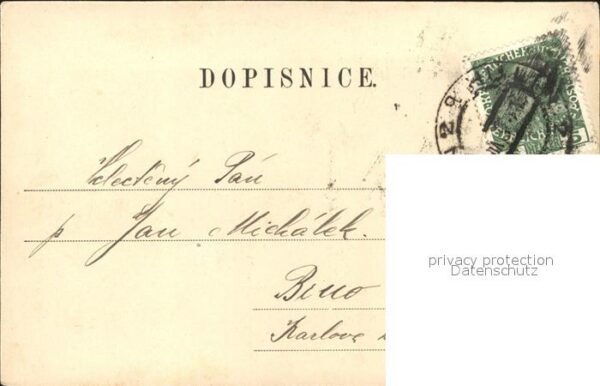 DOPISNICE.
Velectěný Pán
p Jan Michálek.
Brno
Karlova
privacy protection
Datenschutz